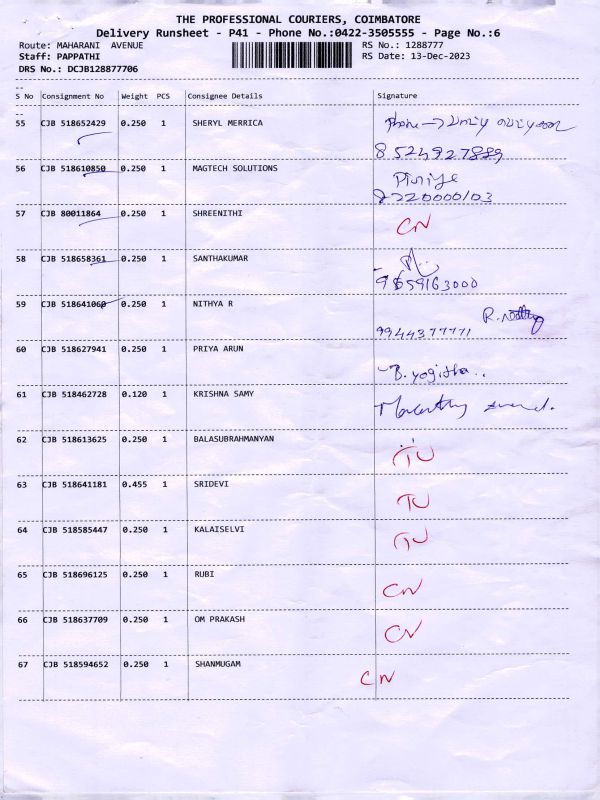 THE PROFESSIONAL COURIERS, COIMBATORE
Delivery Runsheet - P41 - Phone No.:0422-3505555 - Page No.:6
Route: MAHARANI AVENUE RS No.: 1288777
Staff: PAPPATHI RS Date: 13-Dec-2023
DRS No.: DCJB128877706
--
S No Consignment No Weight PCS Consignee Details Signature
--
55 CJB 518652429 0.250 1 SHERYL MERRICA Phone →
8524927889
56 CJB 518610850 0.250 1 MAGTECH SOLUTIONS
8220000103
57 CJB 80011864 0.250 1 SHREENITHI CN
58 CJB 518658361 0.250 1 SANTHAKUMAR
9659163000
59 CJB 518641060 0.250 1 NITHYA R
9944377771
60 CJB 518627941 0.250 1 PRIYA ARUN
B. yogitha..
61 CJB 518462728 0.120 1 KRISHNA SAMY
62 CJB 518613625 0.250 1 BALASUBRAHMANYAN TU
63 CJB 518641181 0.455 1 SRIDEVI TU
64 CJB 518585447 0.250 1 KALAISELVI TU
65 CJB 518696125 0.250 1 RUBI CN
66 CJB 518637709 0.250 1 OM PRAKASH CN
67 CJB 518594652 0.250 1 SHANMUGAM CN